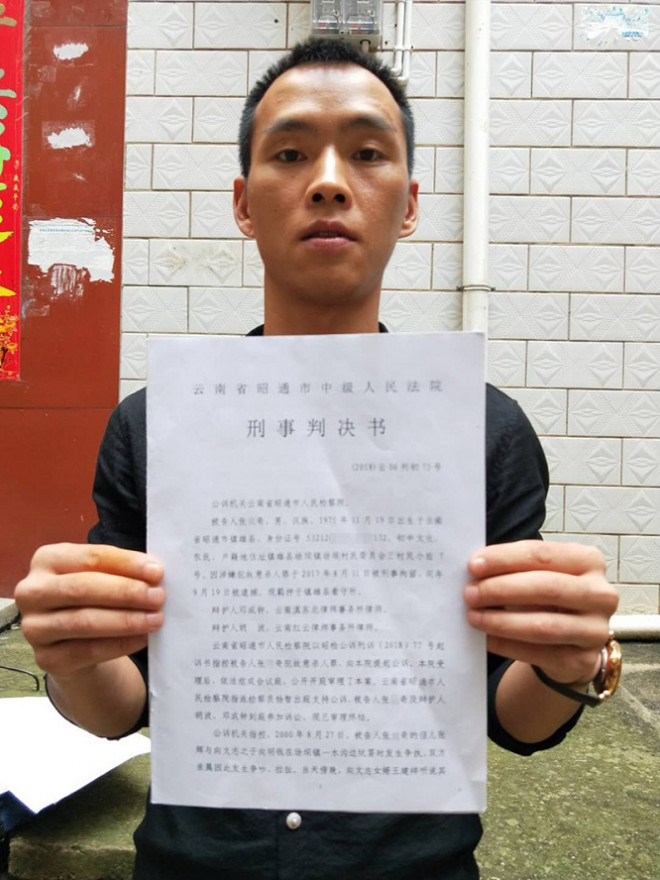 云南省昭通市中级人民法院
刑事判决书
(2018)云06刑初73号
公诉机关云南省昭通市人民检察院。
被告人张 奇，男，汉族，1971年11月19日出生于云南
省昭通市镇雄县，身份证号 53212 132，初中文化，
农民，户籍地住址镇雄县 村民委员会三村民小组7
号。因涉嫌犯故意杀人罪于2017年8月11日被刑事拘留，同年
9月19日被逮捕。现羁押于镇雄县看守所。
辩护人邓成钟，云南滇东北律师事务所律师。
辩护人胡 波，云南红云律师事务所律师。
云南省昭通市人民检察院以昭检公诉刑诉（2018）77号起
诉书指控被告人张 奇犯故意杀人罪，向本院提起公诉。本院受
理后，依法组成合议庭，公开开庭审理了本案。云南省昭通市人
民检察院指派检察员杨智出庭支持公诉，被告人张 奇及辩护人
胡波、邓成钟到庭参加诉讼，现已审理终结。
公诉机关指控，2000年8月27日，被告人张 奇的侄儿张
辉与向文志之子向明钱在 镇一水沟边玩耍时发生争执，双方
亲属因此发生争吵、拉扯。当天傍晚，向文志女婿王建祥听说其